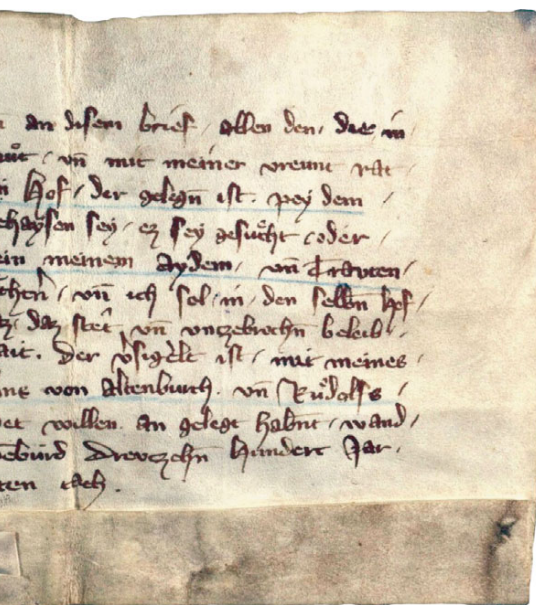 an disem brief / allen den / die in
vn̄ mit meiner vreunt rat
Hof / der gelegn̄ ist . pey dem /
gehaysen sey / ez sey gesuͦcht / oder /
mein meinem Aydem / vn̄ Trauten /
vn̄ ich sol in / den selbn̄ hof /
daz stet vn̄ vnzebrochn̄ beleib /
Der v̓sigelt ist / mit meines /
von Altenburch . vn̄ Ruͦdolfs /
willen . an gelegt habnt / wand /
gebuͤrd Drevtzehn̄ Hundert Jar .
tach .